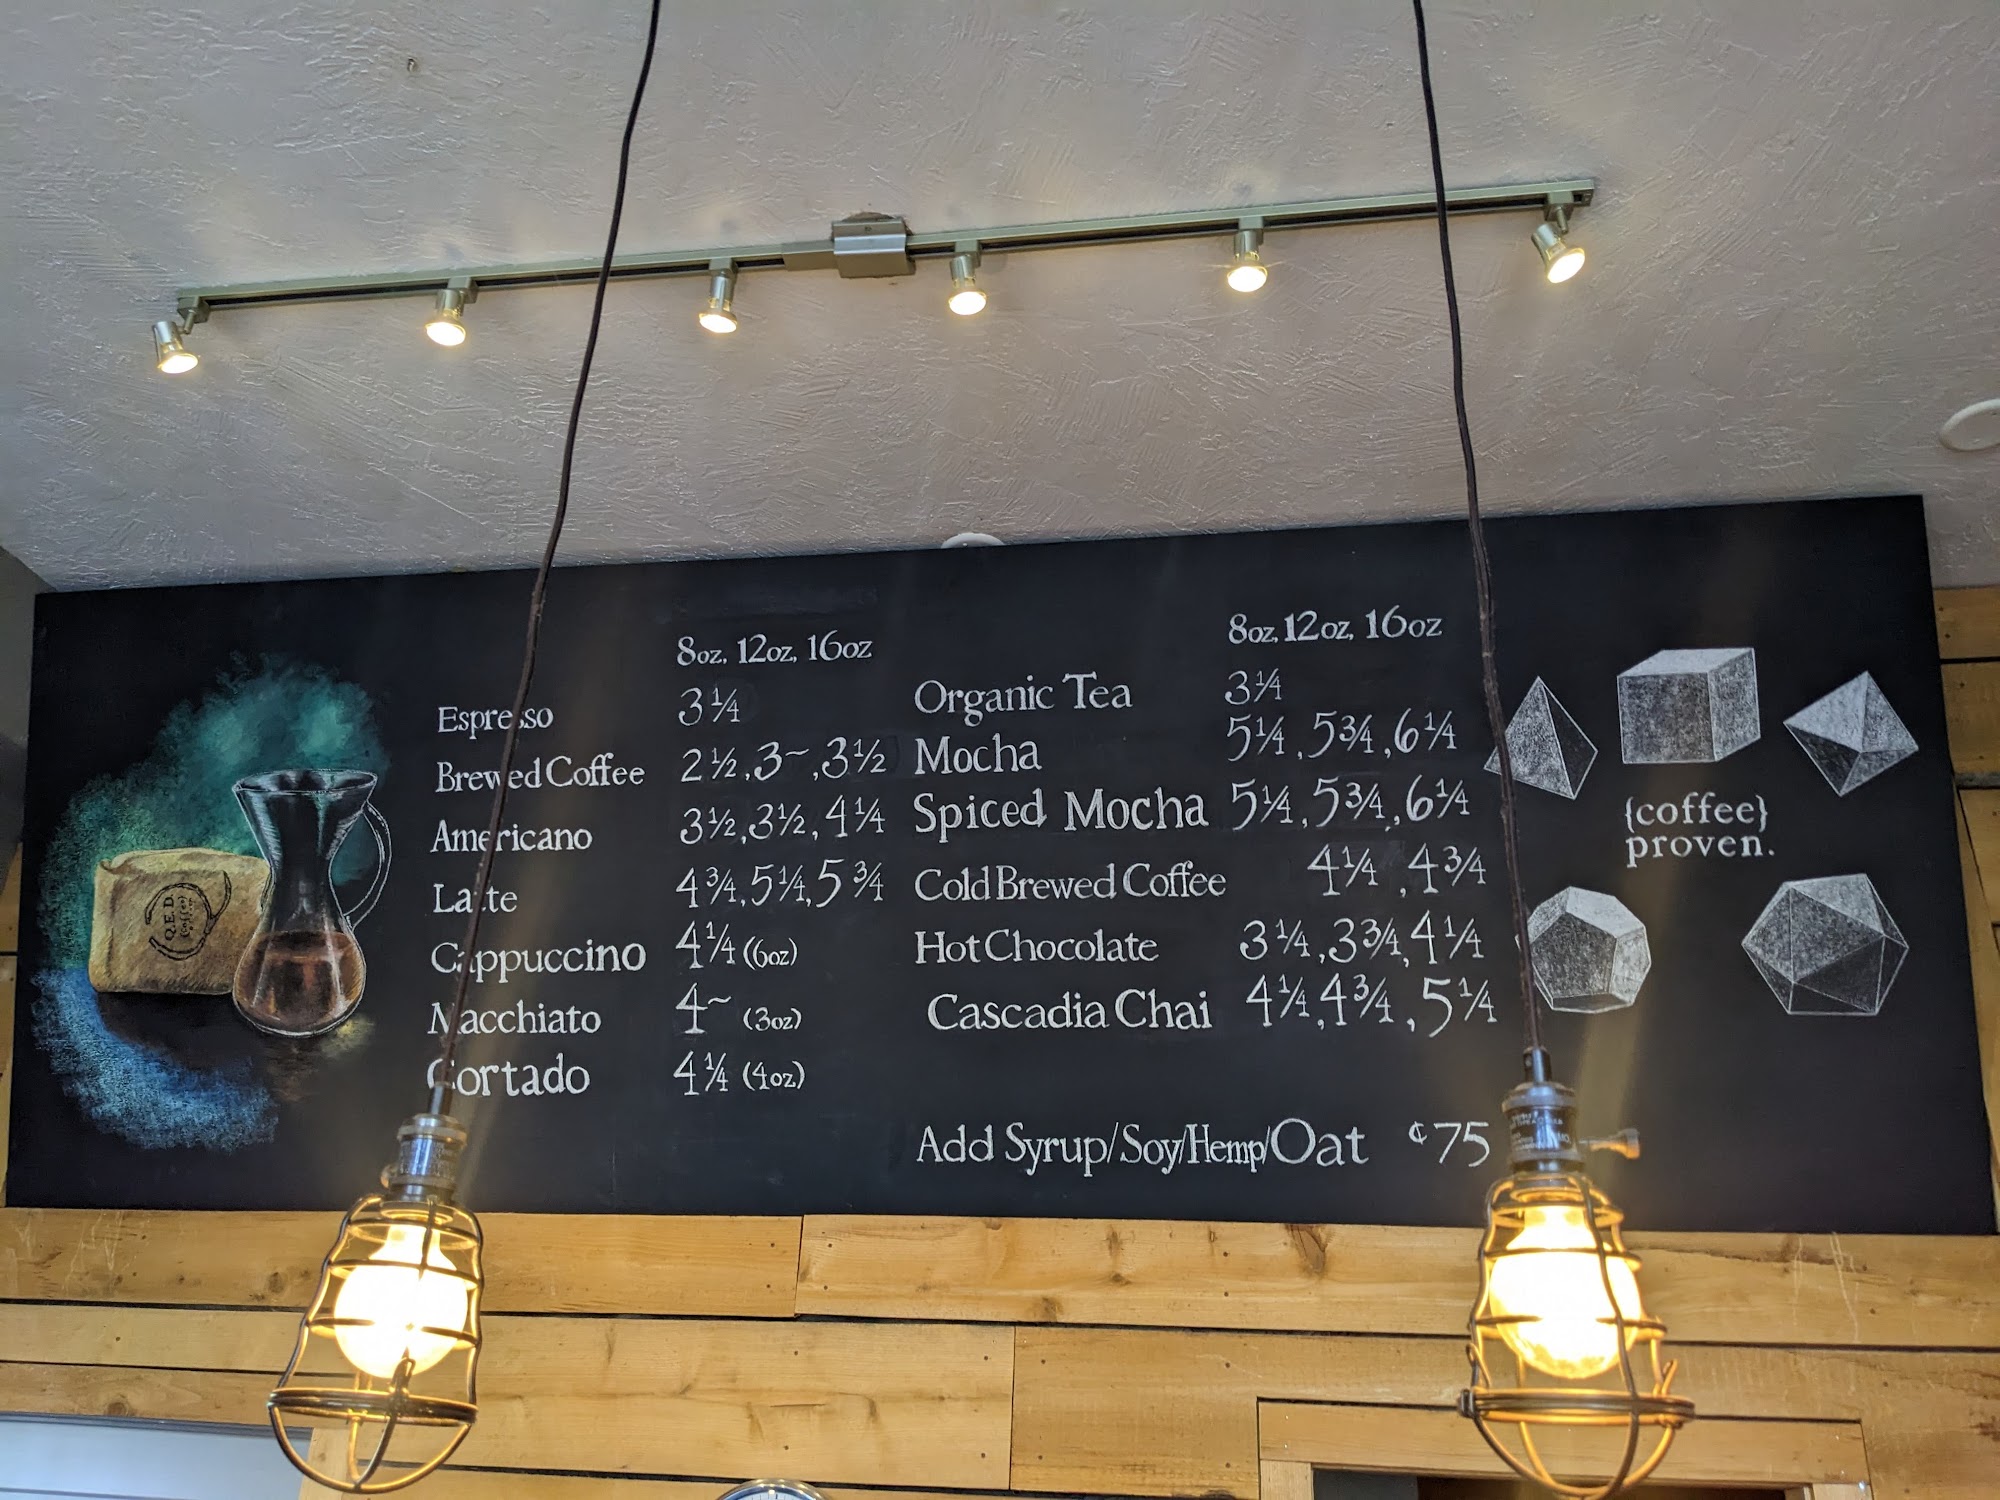 8oz, 12oz, 16oz
Espresso 3¼
Brewed Coffee 2½, 3~, 3½
Americano 3½, 3½, 4¼
Latte 4¾, 5¼, 5¾
Cappuccino 4¼ (6oz)
Macchiato 4~ (3oz)
Cortado 4¼ (4oz)
8oz, 12oz, 16oz
Organic Tea 3¼
Mocha 5¼, 5¾, 6¼
Spiced Mocha 5¼, 5¾, 6¼
Cold Brewed Coffee 4¼, 4¾
Hot Chocolate 3¼, 3¾, 4¼
Cascadia Chai 4¼, 4¾, 5¼
Add Syrup/Soy/Hemp/Oat ¢75
{coffee}
proven.
Q.E.D.
Coffee